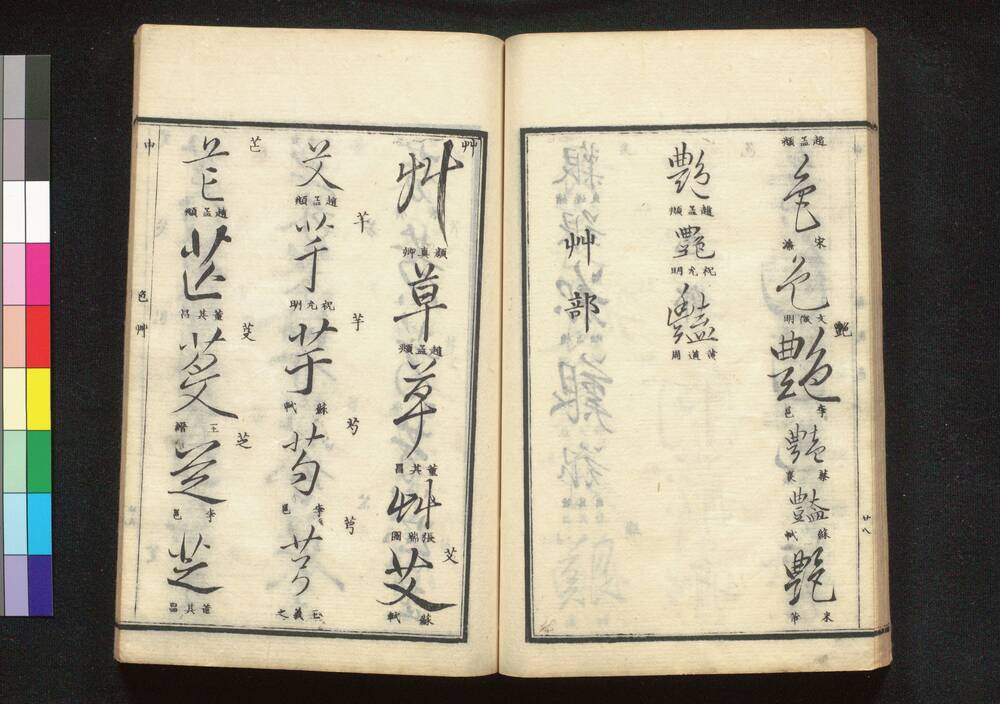 色
趙孟頫
色
宋
色
文徵明
艷
艷
李邕
艷
蔡襄
豔
蘇軾
艷
米芾
艷
趙孟頫
艷
祝允明
豔
黄道周
艸部
廿八
艸
艸
顏真卿
草
趙孟頫
草
董其昌
艸
張瑞圖
艾
艾
蘇軾
艾
趙孟頫
芊
芊
祝允明
芋
芋
蘇軾
芍
芍
李邕
芎
王羲之
芒
芒
趙孟頫
芒
董其昌
芟
芟
王
芝
芝
李邕
芝
董其昌
中
色艸